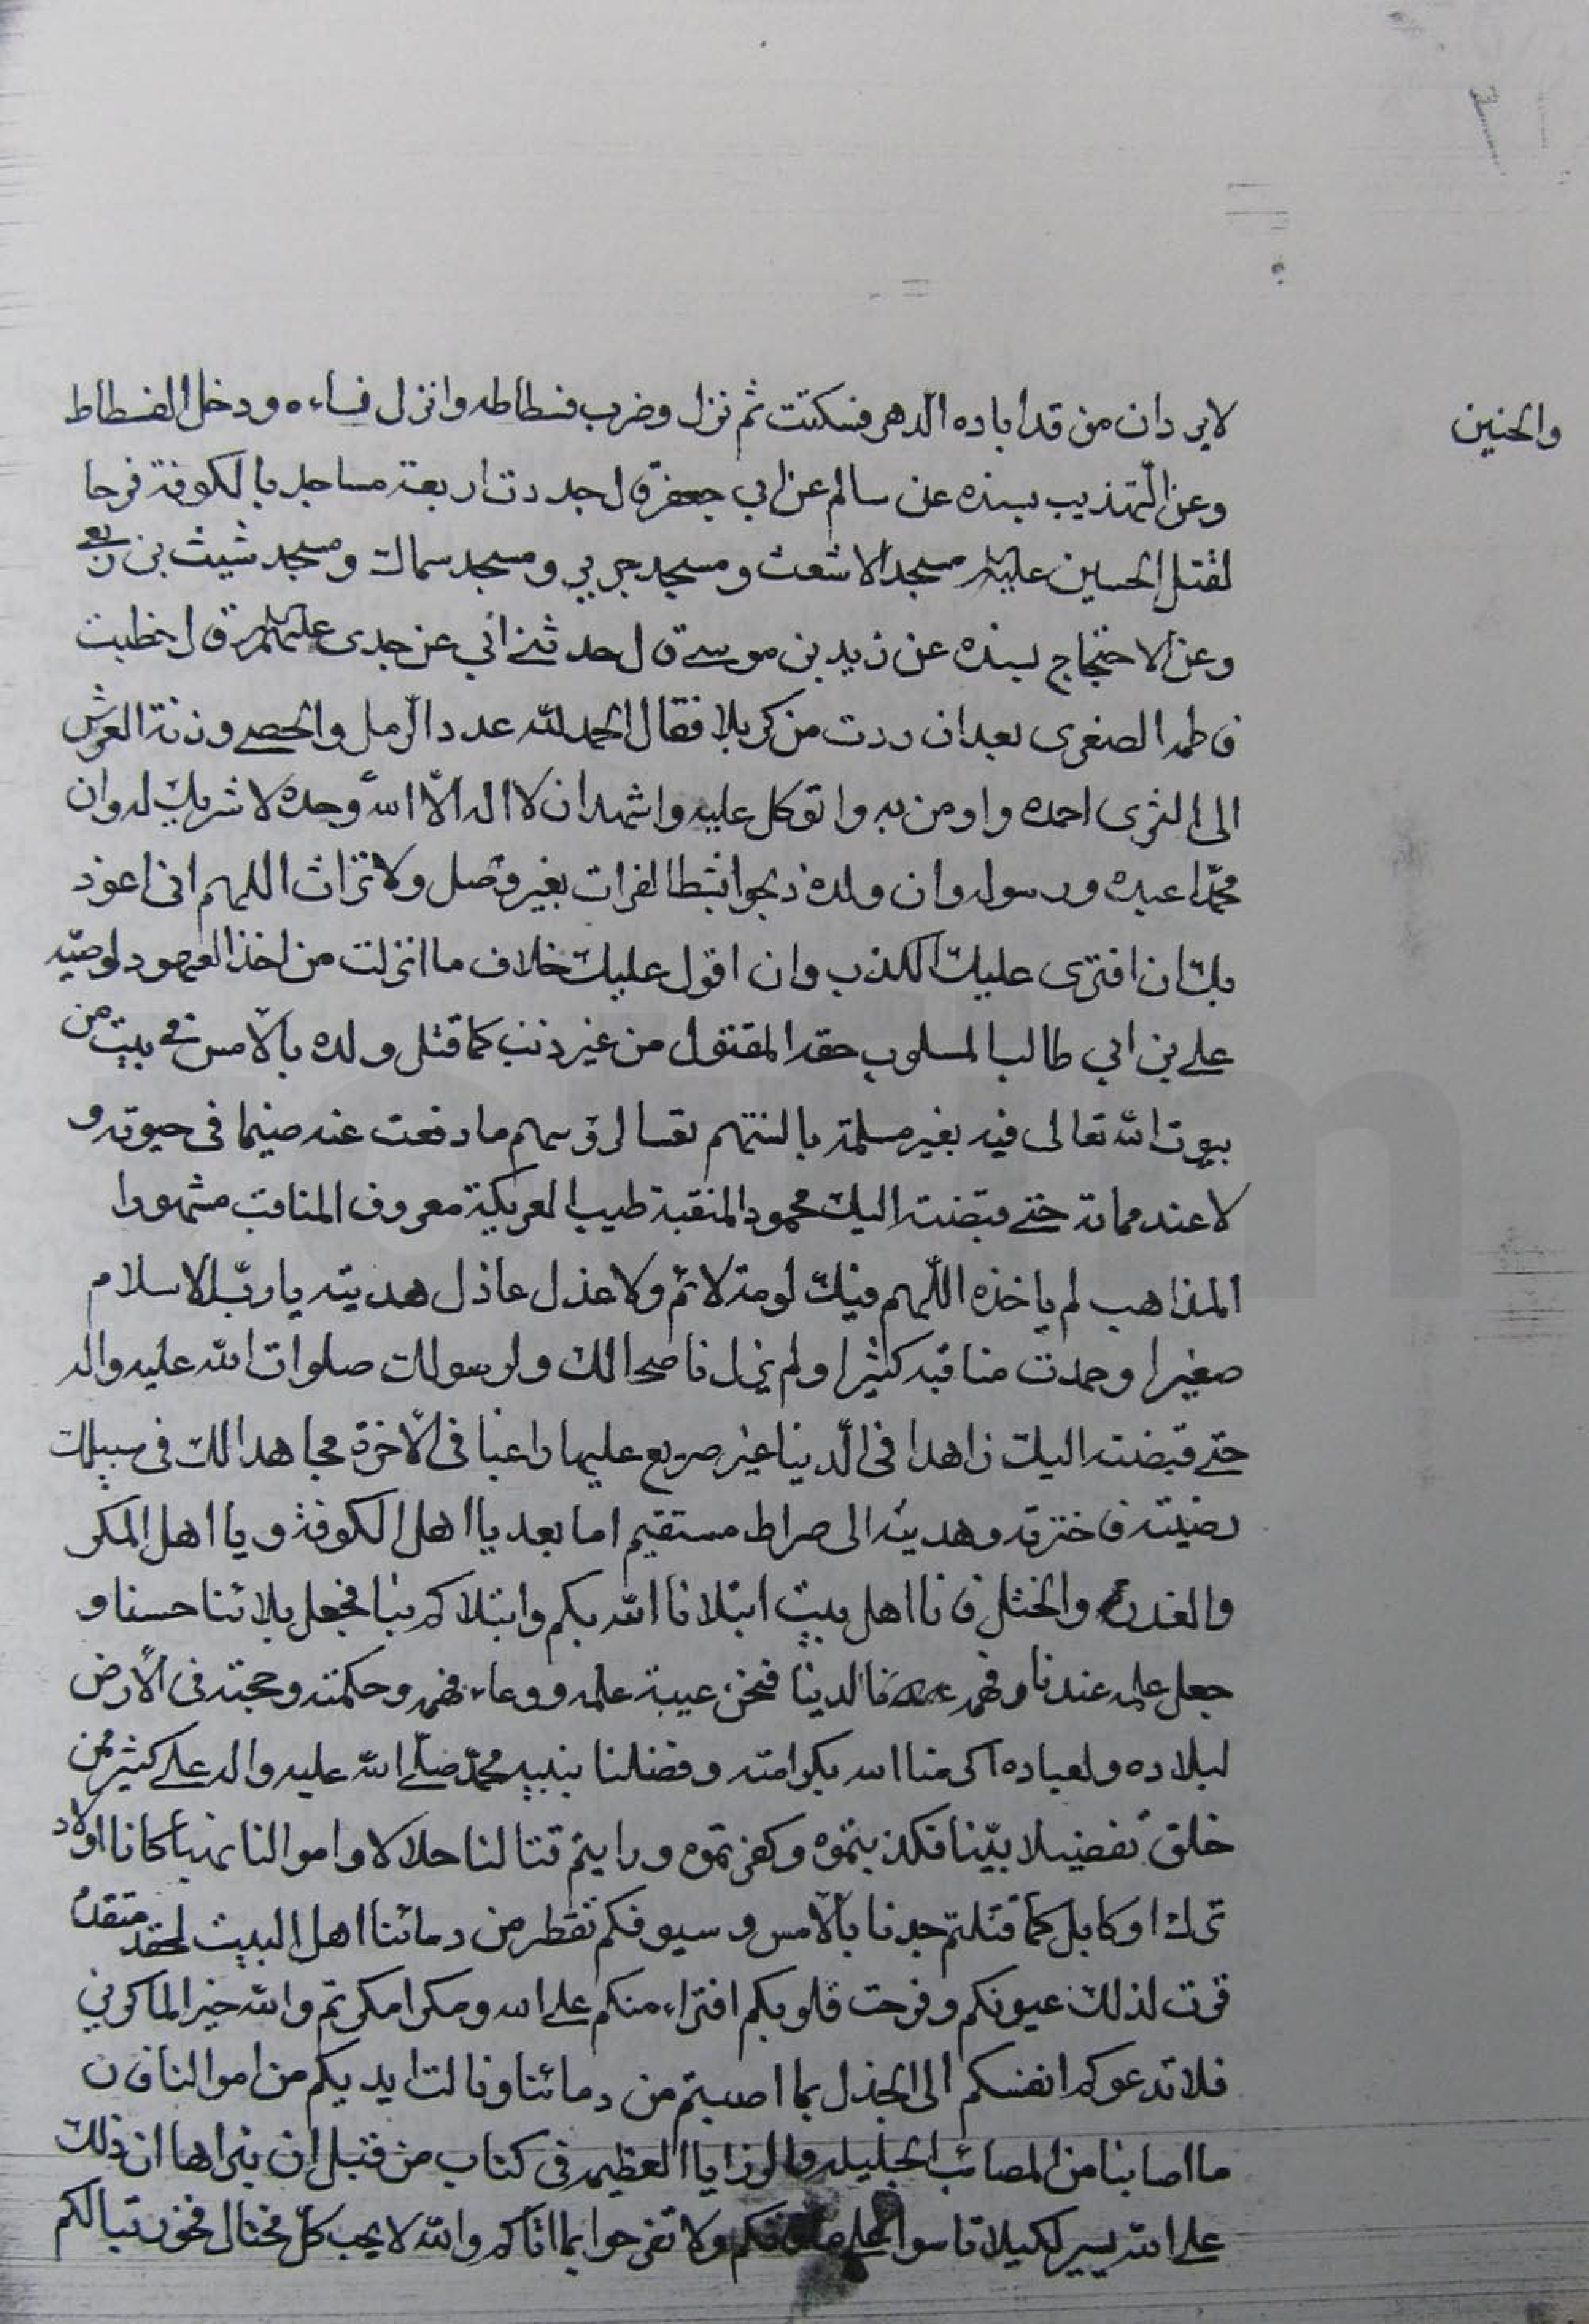 والحنين
لا يردان من قد اباده الدهر فسكتت ثم نزل وضرب فسطاطه وانزل نساءه ودخل الفسطاط
وعن التهذيب بسنده عن سالم عن ابي جعفر قال جددت اربعة مساجد بالكوفة فرحا
لقتل الحسين عليه السلم مسجد الاشعث ومسجد جرير ومسجد سماك ومسجد شيث بن ربعي
وعن الاحتجاج بسنده عن زيد بن موسى قال حدثني ابي عن جدي عليهم السلم قال خطبت
فاطمه الصغرى بعد ان ردت من كربلا فقال الحمد لله عدد الرمل والحصى وزنة العرش
الى الثرى احمده واومن به واتوكل عليه واشهد ان لا اله الا الله وحده لا شريك له وان
محمدا عبده ورسوله وان ولده ذبحوا بشط الفرات بغير وصل ولا تراث اللهم اني اعوذ
بك ان افترى عليك الكذب وان اقول عليك خلاف ما انزلت من اخذ العهود لوصيه
علي بن ابي طالب المسلوب حقه المقتول من غير ذنب كما قتل ولده بالامس في بيت من
بيوت الله تعالى فيه بغير مسلمة بالسنتهم تعسا لرؤسهم ما دفعت عنه ضيما في حيوته و
لا عند مماته حتى قبضته اليك محمود المنقبة طيب العريكة معروف المناقب مشهورا
المذاهب لم ياخذه اللهم فيك لومة لائم ولا عذل عاذل هديته يا رب للاسلام
صغيرا وحمدت مناقبه كثيرا ولم يزل ناصحا لك ولرسولك صلوات الله عليه واله
حتى قبضته اليك زاهدا في الدنيا غير صريع عليها راغبا في الاخرة مجاهدا لك في سبيلك
رضيته فاخترته وهديته الى صراط مستقيم اما بعد يا اهل الكوفة ويا اهل المكر
والغدر والختل فانا اهل بيت ابتلانا الله بكم وابتلاكم بنا فجعل بلائنا حسنا و
جعل علمه عندنا وفهمه لدينا فنحن عيبة علمه ووعاء فهمه وحكمته وحجته في الارض
لبلاده ولعباده اكرمنا الله بكرامته وفضلنا بنبيه محمد صلى الله عليه واله على كثير ممن
خلق تفضيلا بيّنا فكذبتموه وكفرتموه ورايتم قتالنا حلالا واموالنا نهبا كانا اولاد
ترك او كابل كما قتلتم جدنا بالامس وسيوفكم تقطر من دمائنا اهل البيت لحقد متقدم
قرت لذلك عيونكم وفرحت قلوبكم افتراء منكم على الله ومكرا مكرتم والله خير الماكرين
فلا تدعوكم انفسكم الى الجذل بما اصبتم من دمائنا ونالت ايديكم من اموالنا فان
ما اصابنا من المصائب الجليله والرزايا العظيمه في كتاب من قبل ان نبراها ان ذلك
على الله يسير لكيلا تاسوا على ما فاتكم ولا تفرحوا بما اتاكم والله لا يحب كل مختال فخور تبا لكم